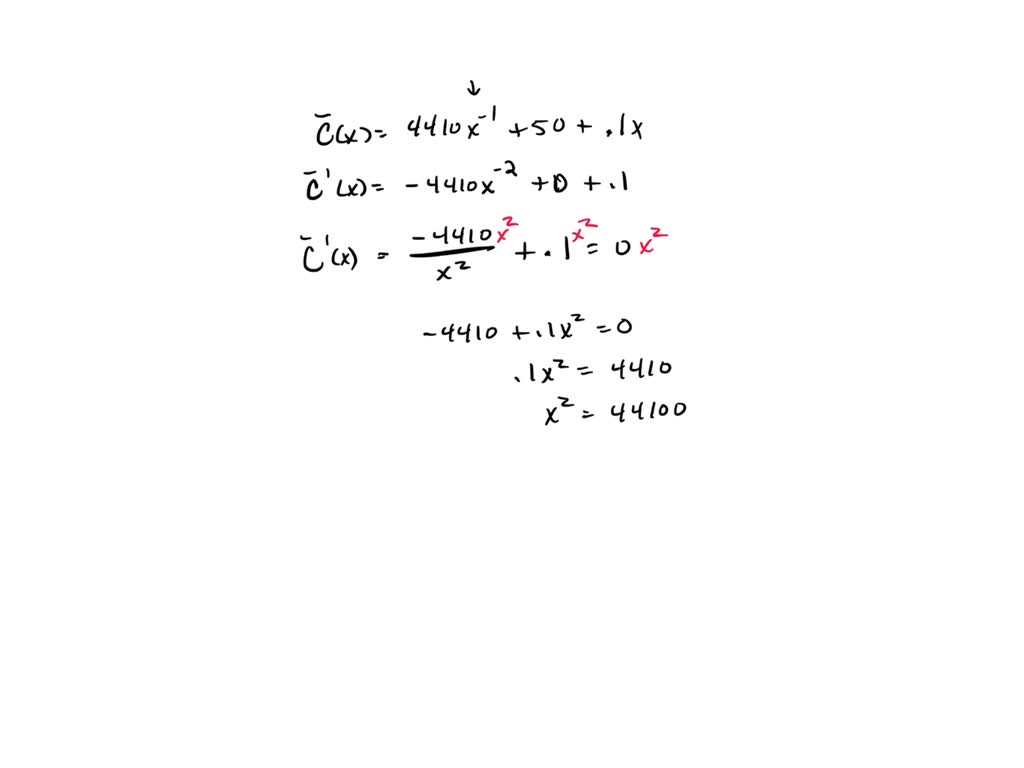 ↓
C̄(x) = 4410x⁻¹ + 50 + .1x
C̄'(x) = -4410x⁻² + 0 + .1
C̄'(x) = -4410x²/x² + .1x² = 0x²
-4410 + .1x² = 0
.1x² = 4410
x² = 44100